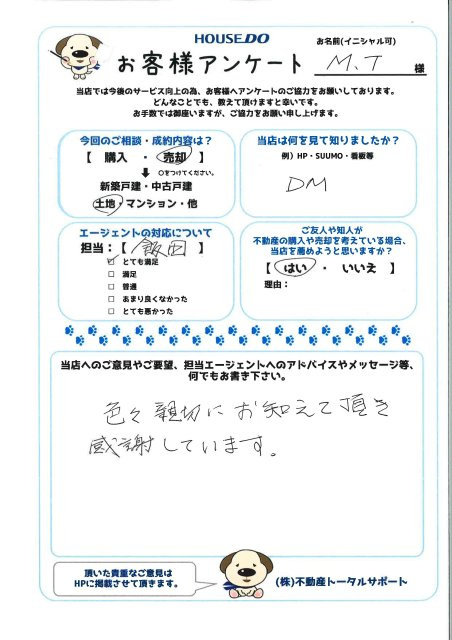 HOUSE DO
お名前(イニシャル可)
お客様アンケート M.T 様
当店では今後のサービス向上の為、お客様へアンケートのご協力をお願いしております。
どんなことでも、教えて頂けますと幸いです。
お手数では御座いますが、ご協力をお願い申し上げます。
今回のご相談・成約内容は?
【 購入 ・ 売却 】
○をつけてください。
新築戸建・中古戸建
土地・マンション・他
当店は何を見て知りましたか?
例)HP・SUUMO・看板等
DM
エージェントの対応について
担当:【 飯田 】
☑ とても満足
□ 満足
□ 普通
□ あまり良くなかった
□ とても悪かった
ご友人や知人が
不動産の購入や売却を考えている場合、
当店を薦めようと思いますか?
【 はい ・ いいえ 】
理由:
当店へのご意見やご要望、担当エージェントへのアドバイスやメッセージ等、
何でもお書き下さい。
色々親切にお知えて頂き
感謝しています。
頂いた貴重なご意見は
HPに掲載させて頂きます。
(株)不動産トータルサポート